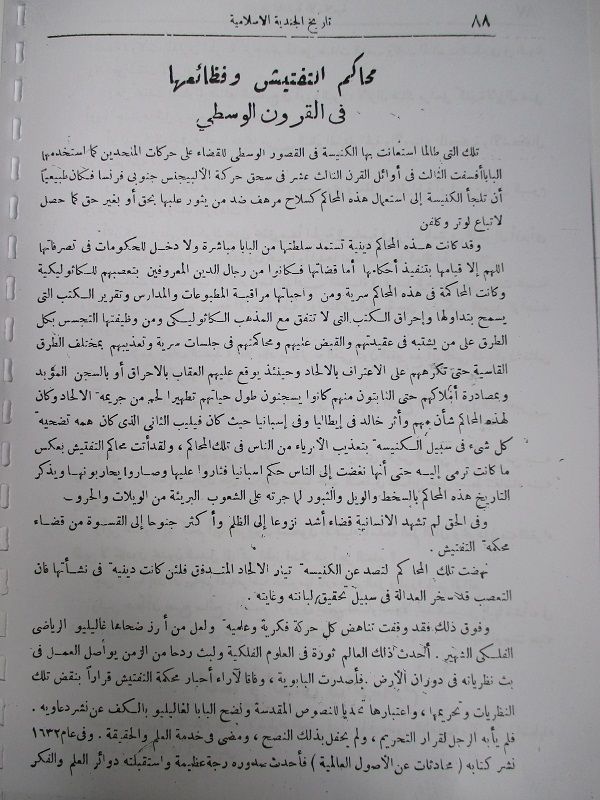 ٨٨
تاريخ الجندية الاسلامية
محاكم التفتيش وفظائعها
فى القرون الوسطي
تلك التى طالما استعانت بها الكنيسة فى القصور الوسطي للقضاء على حركات المتحدين كما استخدمها
البابا أفسنت الثالث فى أوائل القرن الثالث عشر فى سحق حركة الالبيجنس جنوبى فرنسا فكان طبيعياً
أن تلجأ الكنيسة إلى استعمال هذه المحاكم كسلاح مرهف ضد من يثور عليها بحق أو بغير حق كما حصل
لاتباع لوتر وكلفن
وقد كانت هذه المحاكم دينية تستمد سلطتها من البابا مباشرة ولا دخل للحكومات فى تصرفاتها
اللهم إلا قيامها بتنفيذ أحكامها أما قضاتها فكانوا من رجال الدين المعروفين بتعصبهم للكاثوليكية
وكانت المحاكمة فى هذه المحاكم سرية ومن واجباتها مراقبة المطبوعات والمدارس وتقرير الكتب التى
يسمح بتداولها وإحراق الكتب التى لا تتفق مع المذهب الكاثوليكى ومن وظيفتها التجسس بكل
الطرق على من يشتبه فى عقيدتهم والقبض عليهم ومحاكمتهم فى جلسات سرية وتعذيبهم بمختلف الطرق
القاسية حتى تكرههم على الاعتراف بالالحاد وحينئذ يوقع عليهم العقاب بالاحراق أو بالسجن المؤبد
وبمصادرة أملاكهم حتى التائبون منهم كانوا يسجنون طول حياتهم تطهير الحم من جريمة الالحاد وكان
لهذه المحاكم شأن مهم وأثر خالد فى إيطاليا وفى إسبانيا حيث كان فيليب الثانى الذى كان همه تضحية
كل شىء فى سبيل الكنيسة بتعذيب الأبرياء من الناس فى تلك المحاكم ، ولقد أتت محاكم التفتيش بعكس
ما كانت ترمى إليه حتى أنها نغصت إلى الناس حكم اسبانيا فثاروا عليها وصاروا يحاربونها ويذكر
التاريخ هذه المحاكم بالسخط والويل والثبور لما جرته على الشعوب البريئة من الويلات والحروب
وفى الحق لم تشهد الانسانية قضاء أشد نزوعا إلى الظلم وأكثر جنوحا إلى القسوة من قضاء
محكمة التفتيش .
نهضت تلك المحاكم لتصد عن الكنيسة تيار الالحاد المتدفق فلئن كانت دينية فى نشأتها فان
التعصب قد سخر العدالة فى سبيل تحقيق لبانته وغايته .
وفوق ذلك فقد وقفت تناهض كل حركة فكرية وعلمية ولعل من أبرز ضحاها غاليليو الرياضى
الفلكى الشهير . ألحدث ذلك العالم ثورة فى العلوم الفلكية ولبث ردحا من الزمن يواصل العمل فى
بث نظرياته فى دوران الأرض . فأصدرت البابوية ، وفاقا لآراء أحبار محكمة التفتيش قراراً بنقض تلك
النظريات وتحريمها ، واعتبارها تحديا للنصوص المقدسة ونصح البابا لغاليليو بالكف عن نشر دعاويه .
فلم يأبه الرجل لقرار التحريم ، ولم يحفل بذلك النصح ، ومضى فى خدمة العلم والحقيقة . وفى عام ١٦٣٢
نشر كتابه ( محادثات عن الأصول العالمية ) فأحدث صدوره رجة عظيمة واستقبلته دوائر العلم والفكر